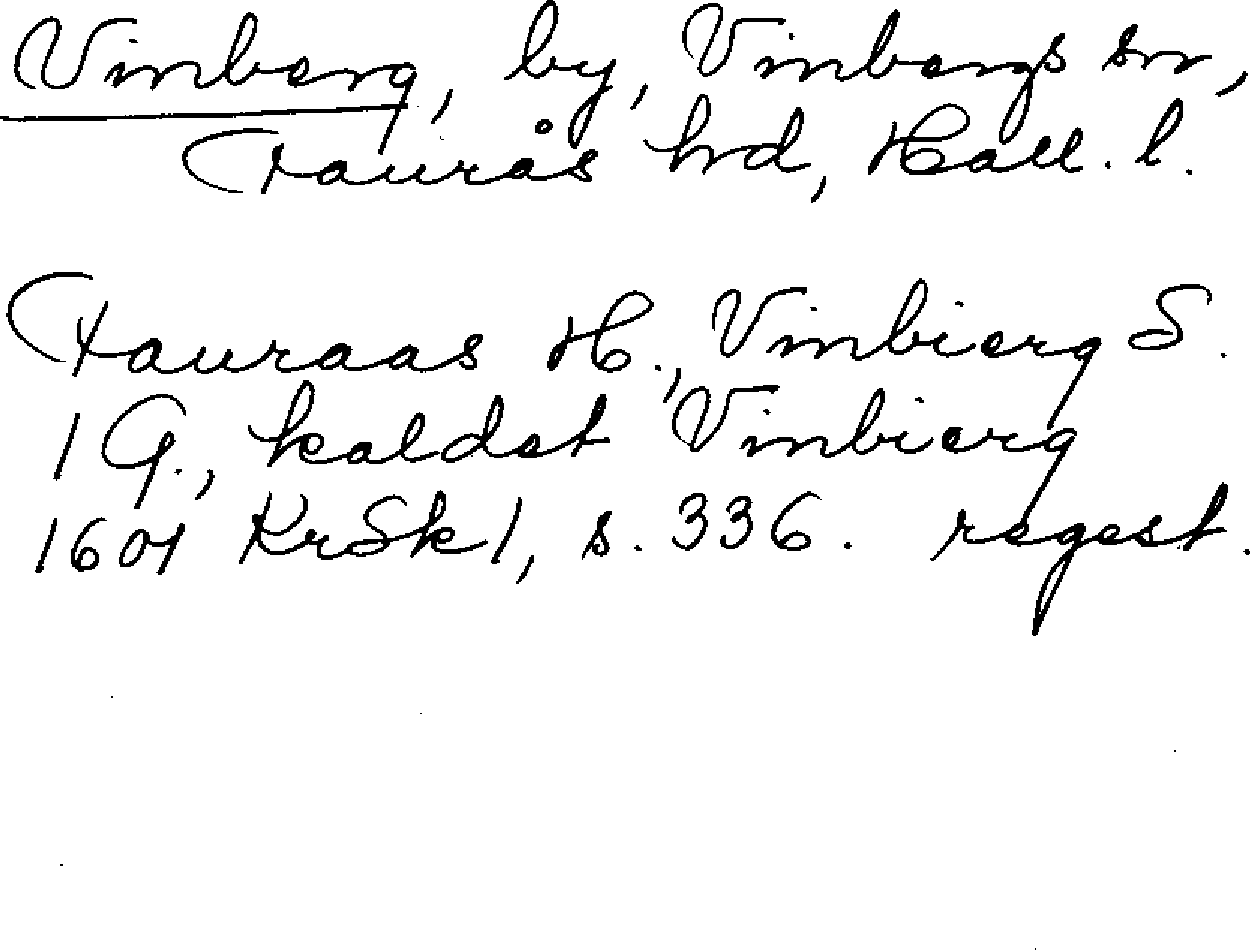 Vinberg, by, Vinbergs sn,
Faurås hd, Hall. l.
Fauraas H., Vinbierg S.
1 G., kaldet Vinbierg
1601 KrSk 1, s. 336. regest.